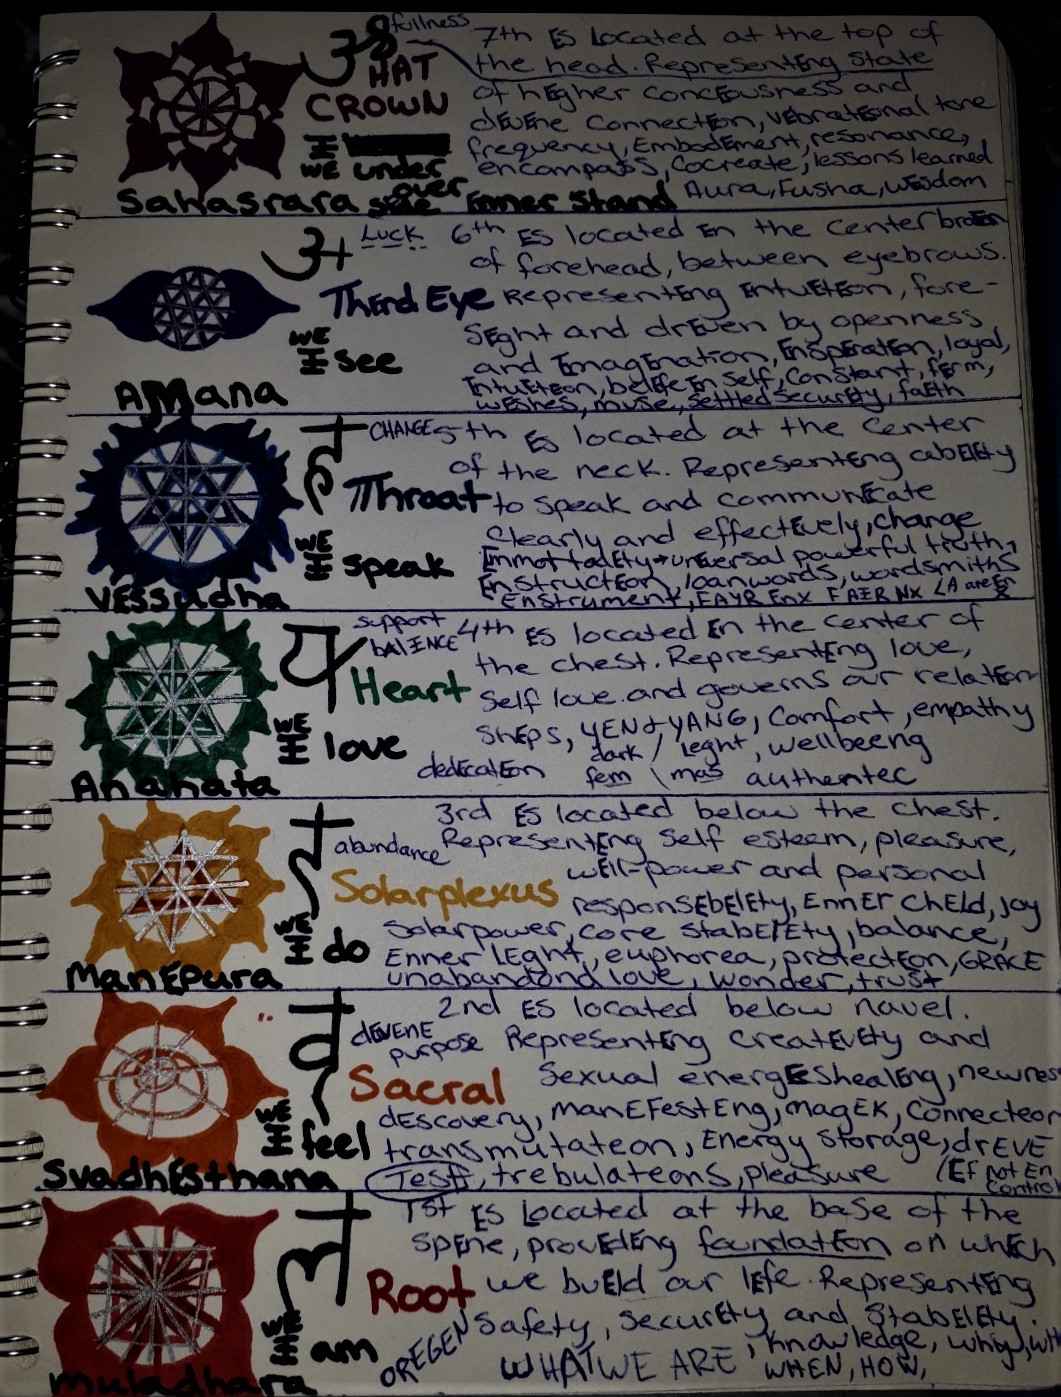 fullness
HAT
CROWN
I
WE under
over
Sahasrara side Enner Stand
7th Es Located at the top of
the head. RepresentEng State
of hEgher concEousness and
dEvEne Connection, vEbrateonal tone
frequency, EmbodEment, resonance,
encompass, Cocreate, lessons learned
Aura, Fusha, wEsdom
Luck
ThErd Eye
WE
I see
AMana
6th Es located En the center
of forehead, between eyebrows.
RepresentEng EntuEtEon, fore-
sEght and drEven by openness
and EmagEnatEon, EnspEratEon, loyal,
EntuEteon, belEfe En self, Constant, fErm,
wEshes, muse, settled securEty, faEth
CHANGE
Throat
WE
I speak
VEssudha
5th Es located at the center
of the neck. RepresentEng abElEty
to speak and communEcate
Clearly and effectEvely, change
unEversal powerful truth,
EnstructEon, loanwords, wordsmiths
Enstrument, FAYR Enx FAER Nx
support
balENCE
Heart
WE
I love
Anahata
4th Es located En the center of
the chest. RepresentEng love,
Self love and governs our relatEon-
shEps, YEN & YANG, Comfort, empathy
dark / leght, wellbeeng
dedEcatEon fem \ mas authentec
abundance
Solarplexus
WE
I do
ManEpura
3rd Es located below the chest.
RepresentEng Self esteem, pleasure,
wEll-power and personal
responsEbElEty, EnnEr ChEld, joy
Solarpower, core stabElEty, balance,
Enner lEght, euphorea, protectEon, GRACE
unabandond love, wonder, trust
dEvENE
purpose
Sacral
WE
I feel
SvadhEsthana
2nd Es located below navel.
RepresentEng CreatEvEty and
Sexual energEes healEng, newness
dEscovery, manEFestEng, magEK, Connecteon
transmutateon, Energy Storage, drEVE
Test, trebulateons, pleasure (Ef not En
Control
Root
WE
I am
Muladhara
1st Es Located at the base of the
SpEne, provEdEng foundatEon on whEch
we buEld our lEfe. RepresentEng
Safety, SecurEty and StabElEty.
OREGEN WHAT WE ARE, Knowledge, why,
WHEN, HOW,